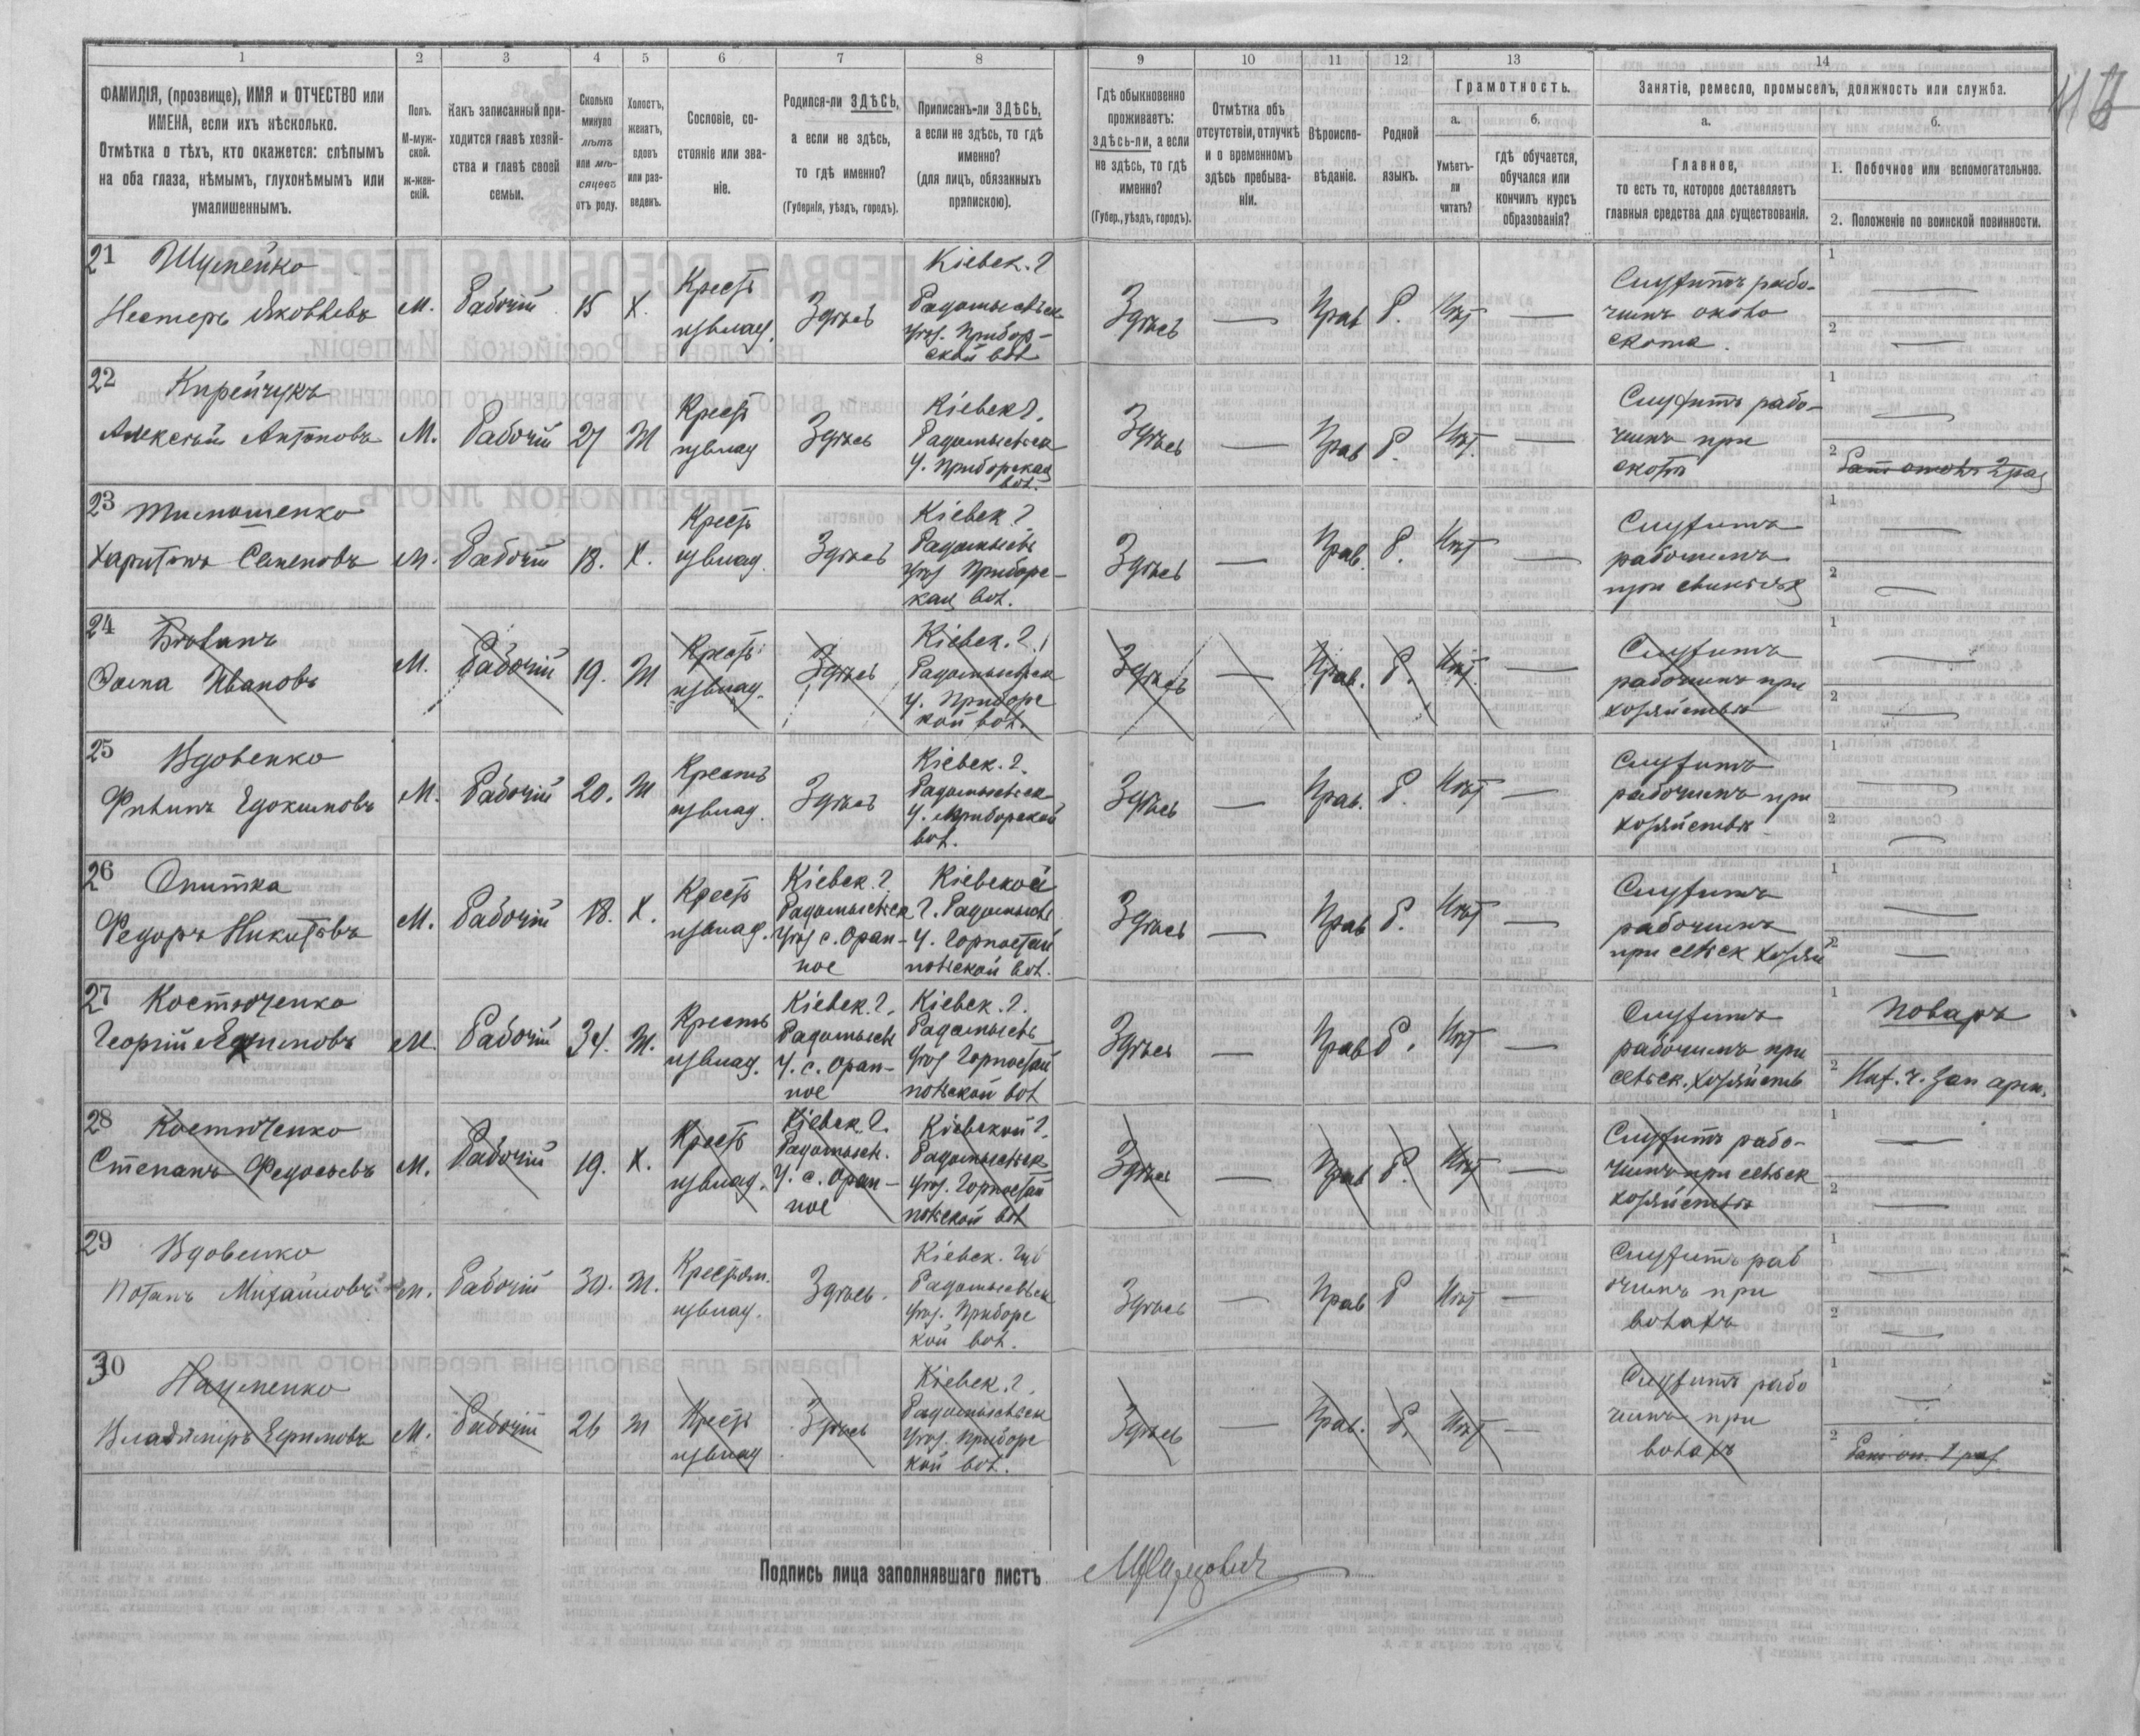 1 2 3 4 5 6 7 8 9 10 11 12 13 14
ФАМИЛІЯ, (прозвище), ИМЯ и ОТЧЕСТВО или
ИМЕНА, если ихъ нѣсколько.
Отмѣтка о тѣхъ, кто окажется: слѣпымъ
на оба глаза, нѣмымъ, глухонѣмымъ или
умалишеннымъ.
Полъ.
М-муж-
ской.
Ж-жен-
скій.
Какъ записанный при-
ходится главѣ хозяй-
ства и главѣ своей
семьи.
Сколько
минуло
лѣтъ
или мѣ-
сяцевъ
отъ роду.
Холостъ,
женатъ,
вдовъ
или раз-
веденъ.
Сословіе, со-
стояніе или зва-
ніе.
Родился-ли ЗДѢСЬ,
а если не здѣсь,
то гдѣ именно?
(Губернія, уѣздъ, городъ).
Приписанъ-ли ЗДѢСЬ,
а если не здѣсь, то гдѣ
именно?
(для лицъ, обязанныхъ
припискою).
Гдѣ обыкновенно
проживаетъ:
здѣсь-ли, а если
не здѣсь, то гдѣ
именно?
(Губер., уѣздъ, городъ).
Отмѣтка объ
отсутствіи, отлучкѣ
и о временномъ
здѣсь пребыва-
ніи.
Вѣроиспо-
вѣданіе.
Родной
языкъ.
Грамотность.
а.
Умѣетъ-
ли
читать?
б.
гдѣ обучается,
обучался или
кончилъ курсъ
образованія?
Занятіе, ремесло, промыселъ, должность или служба.
а.
Главное,
то есть то, которое доставляетъ
главныя средства для существованія.
б.
1. Побочное или вспомогательное.
2. Положеніе по воинской повинности.
21 Шумейко
Нестеръ Яковлевъ М. Рабочій 15 Х. Крест извлад. Здѣсь
Кіевск. г
Радомысльск
уѣз. Прибор-
ской вол
Здѣсь — Прав Р. Нѣт —
Служитъ рабо-
чимъ около
скота.
1 —
2 —
22 Кирейчукъ
Алексѣй Антоновъ М. Рабочій 27 Ж Крест извлад Здѣсь
Кіевск г.
Радомысльск
у. Приборская
вол.
Здѣсь — Прав Р. Нѣт. —
Служитъ рабо-
чимъ при
скотѣ
1 —
2
23 Тимошенко
Харитонъ Семеновъ М. Рабочій 18. Х. Крест извлад. Здѣсь
Кіевск г.
Радомысль
уѣз Приборс-
кая вол.
Здѣсь — Прав. Р. Нѣт —
Служитъ
рабочимъ
при свиньяхъ
1 —
2 —
24
Фома Ивановъ М. Рабочій 19. Ж Крест извлад. Здѣсь
Кіевск. г.
Радомысльск
у. Приборс
кой вол.
Здѣсь — Прав. Р. Нѣт. —
Служитъ
рабочимъ при
хозяйствѣ
1 —
2 —
25 Вдовенко
Филипъ Едокимовъ М. Рабочій 20. Ж Крестъ извлад. Здѣсь
Кіевск. г.
Радомысльск
у. Приборской
вол.
Здѣсь — Прав. Р. Нѣт —
Служитъ
рабочимъ при
хозяйствѣ
1 —
2 —
26 Опитка
Федоръ Никитовъ М. Рабочій 18. Х. Крест извлад.
Кіевск. г.
Радомысльск
уѣз с. Оран-
ное
Кіевской
г. Радомысль
у. Горностай
польской вол.
Здѣсь — Прав Р. Нѣт —
Служитъ
рабочимъ
при сельск хозяй
1 —
2 —
27 Костюченко
Георгій Ефимовъ М. Рабочій 34. Ж. Крестъ извлад.
Кіевск. г.
Радомысль
у. с. Оран-
ное
Кіевск. г.
Радомысль
уѣз Горностай
польской вол
Здѣсь — Прав Р. Нѣт —
Служитъ
рабочимъ при
сельск. хозяйств
1 Поваръ
2 Ниж. ч. зап арм.
28 Костюченко
Степанъ Федосьевъ М. Рабочій 19. Х. Крест извлад.
Кіевск г.
Радомысль.
у. с. Оран-
ное
Кіевской г.
Радомысльск
уѣз. Горностай
польской вол
Здѣсь — Прав Р. Нѣт —
Служитъ рабо-
чимъ при сельск
хозяйствѣ
1 —
2 —
29 Вдовенко
Потапъ Михайловъ М. Рабочій 30. Ж. Крестьян. извлад. Здѣсь.
Кіевск. Губ
Радомысльск
уѣз. Приборс
кой вол.
Здѣсь — Прав Р Нѣт —
Служитъ раб
очимъ при
волахъ
1 —
2 —
30 Науменко
Владиміръ Ефимовъ М. Рабочій 26 Ж Крест извлад Здѣсь
Кіевск. г.
Радомысльск
уѣз. Приборс
кой вол.
Здѣсь — Прав. Р. Нѣт —
Служитъ рабо
чимъ при
волахъ
1 —
2
Подпись лица заполнявшаго листъ